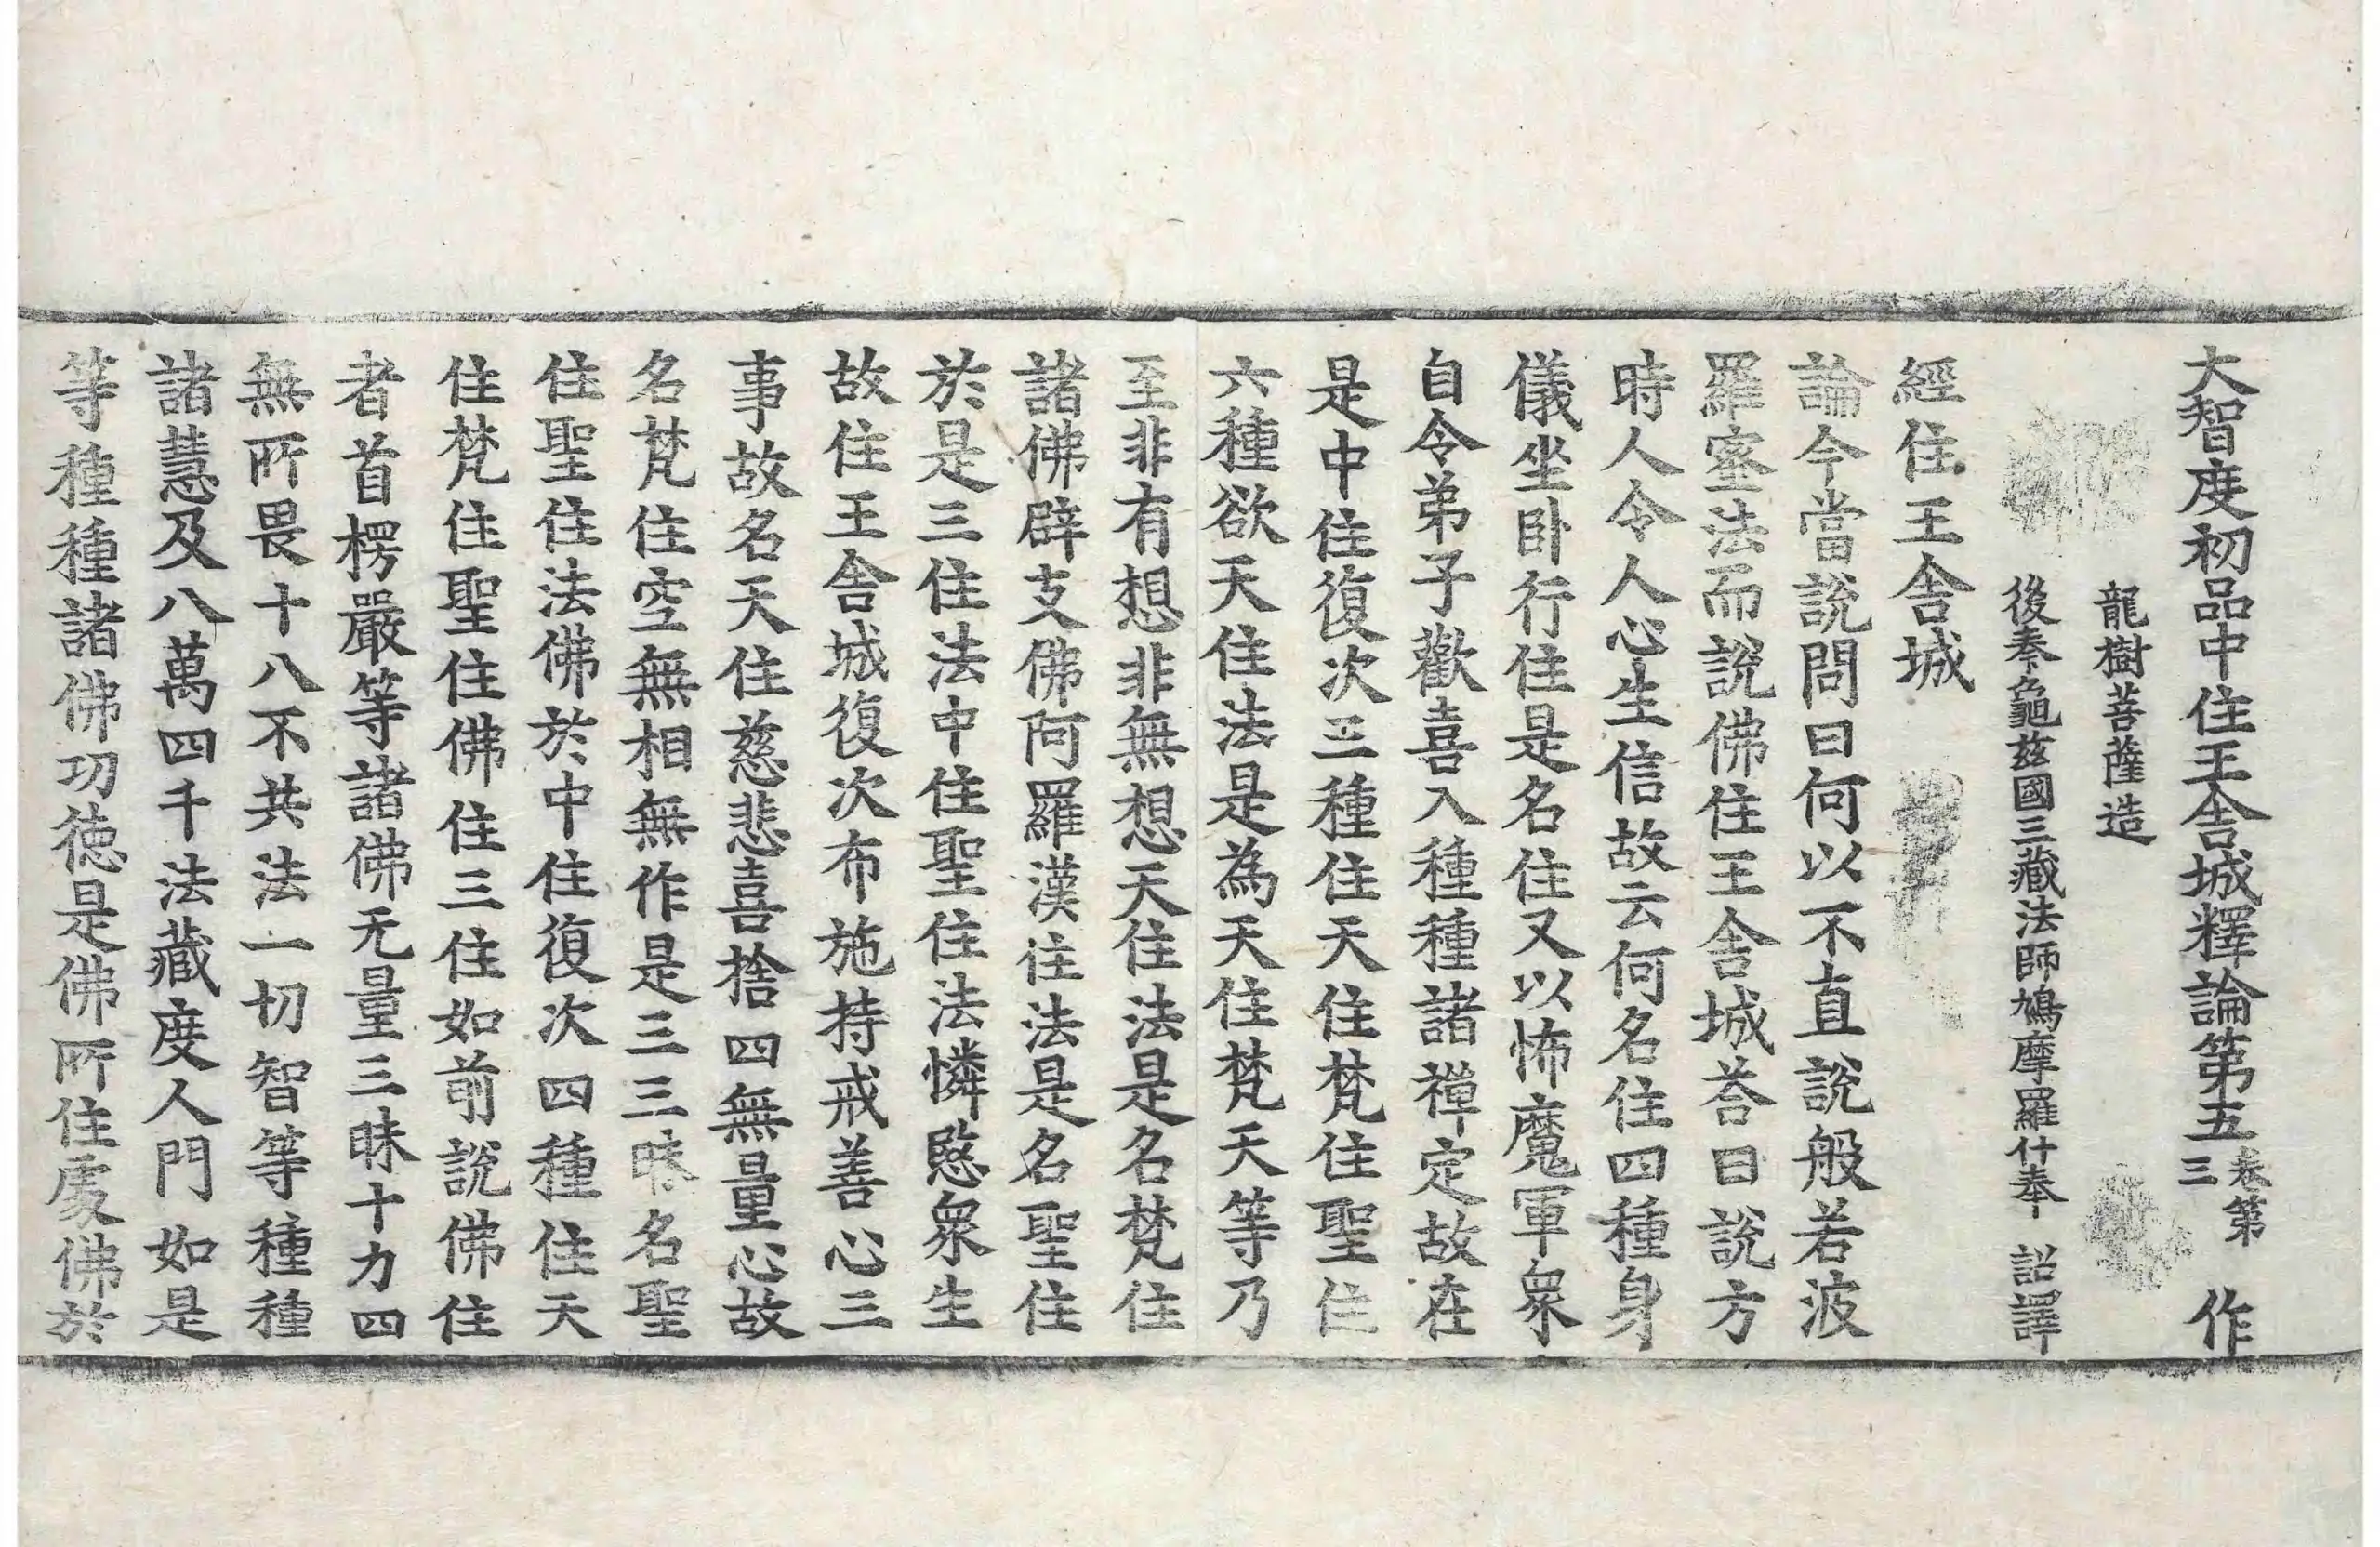 大智度初品中住王舍城釋論第五 卷第三 作
龍樹菩薩造
後秦龜茲國三藏法師鳩摩羅什奉 詔譯
經住王舍城
論今當說問曰何以不直說般若波
羅蜜法而說佛住王舍城荅曰說方
時人令人心生信故云何名住四種身
儀坐臥行住是名住又以怖魔軍衆
自令弟子歡喜入種種諸禪定故在
是中住復次三種住天住梵住聖住
六種欲天住法是為天住梵天等乃
至非有想非無想天住法是名梵住
諸佛辟支佛阿羅漢住法是名聖住
於是三住法中住聖住法憐愍衆生
故住王舍城復次布施持戒善心三
事故名天住慈悲喜捨四無量心故
名梵住空無相無作是三三昧名聖
住聖住法佛於中住復次四種住天
住梵住聖住佛住三住如前說佛住
者首楞嚴等諸佛无量三昧十力四
無所畏十八不共法一切智等種種
諸慧及八萬四千法藏度人門如是
等種種諸佛功德是佛所住處佛於